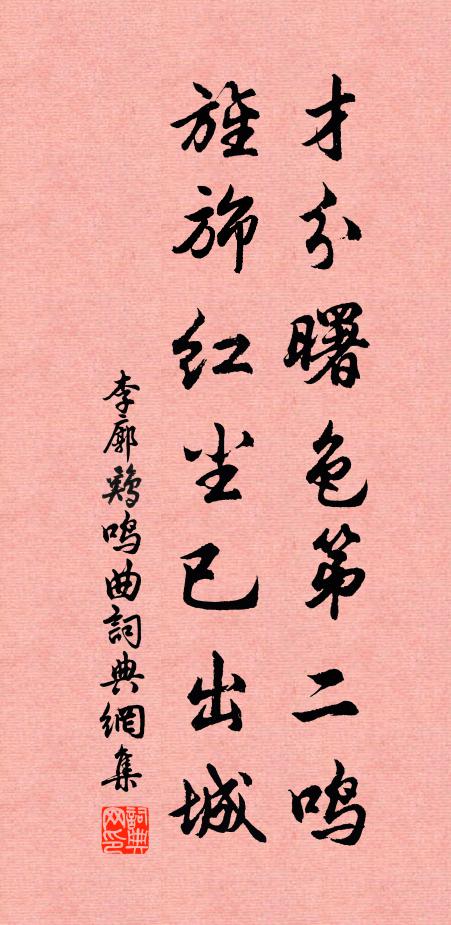 才分曙色第二鸣
旌旆红尘已出城
李廓鷄鸣曲詞典網集
詞典网印